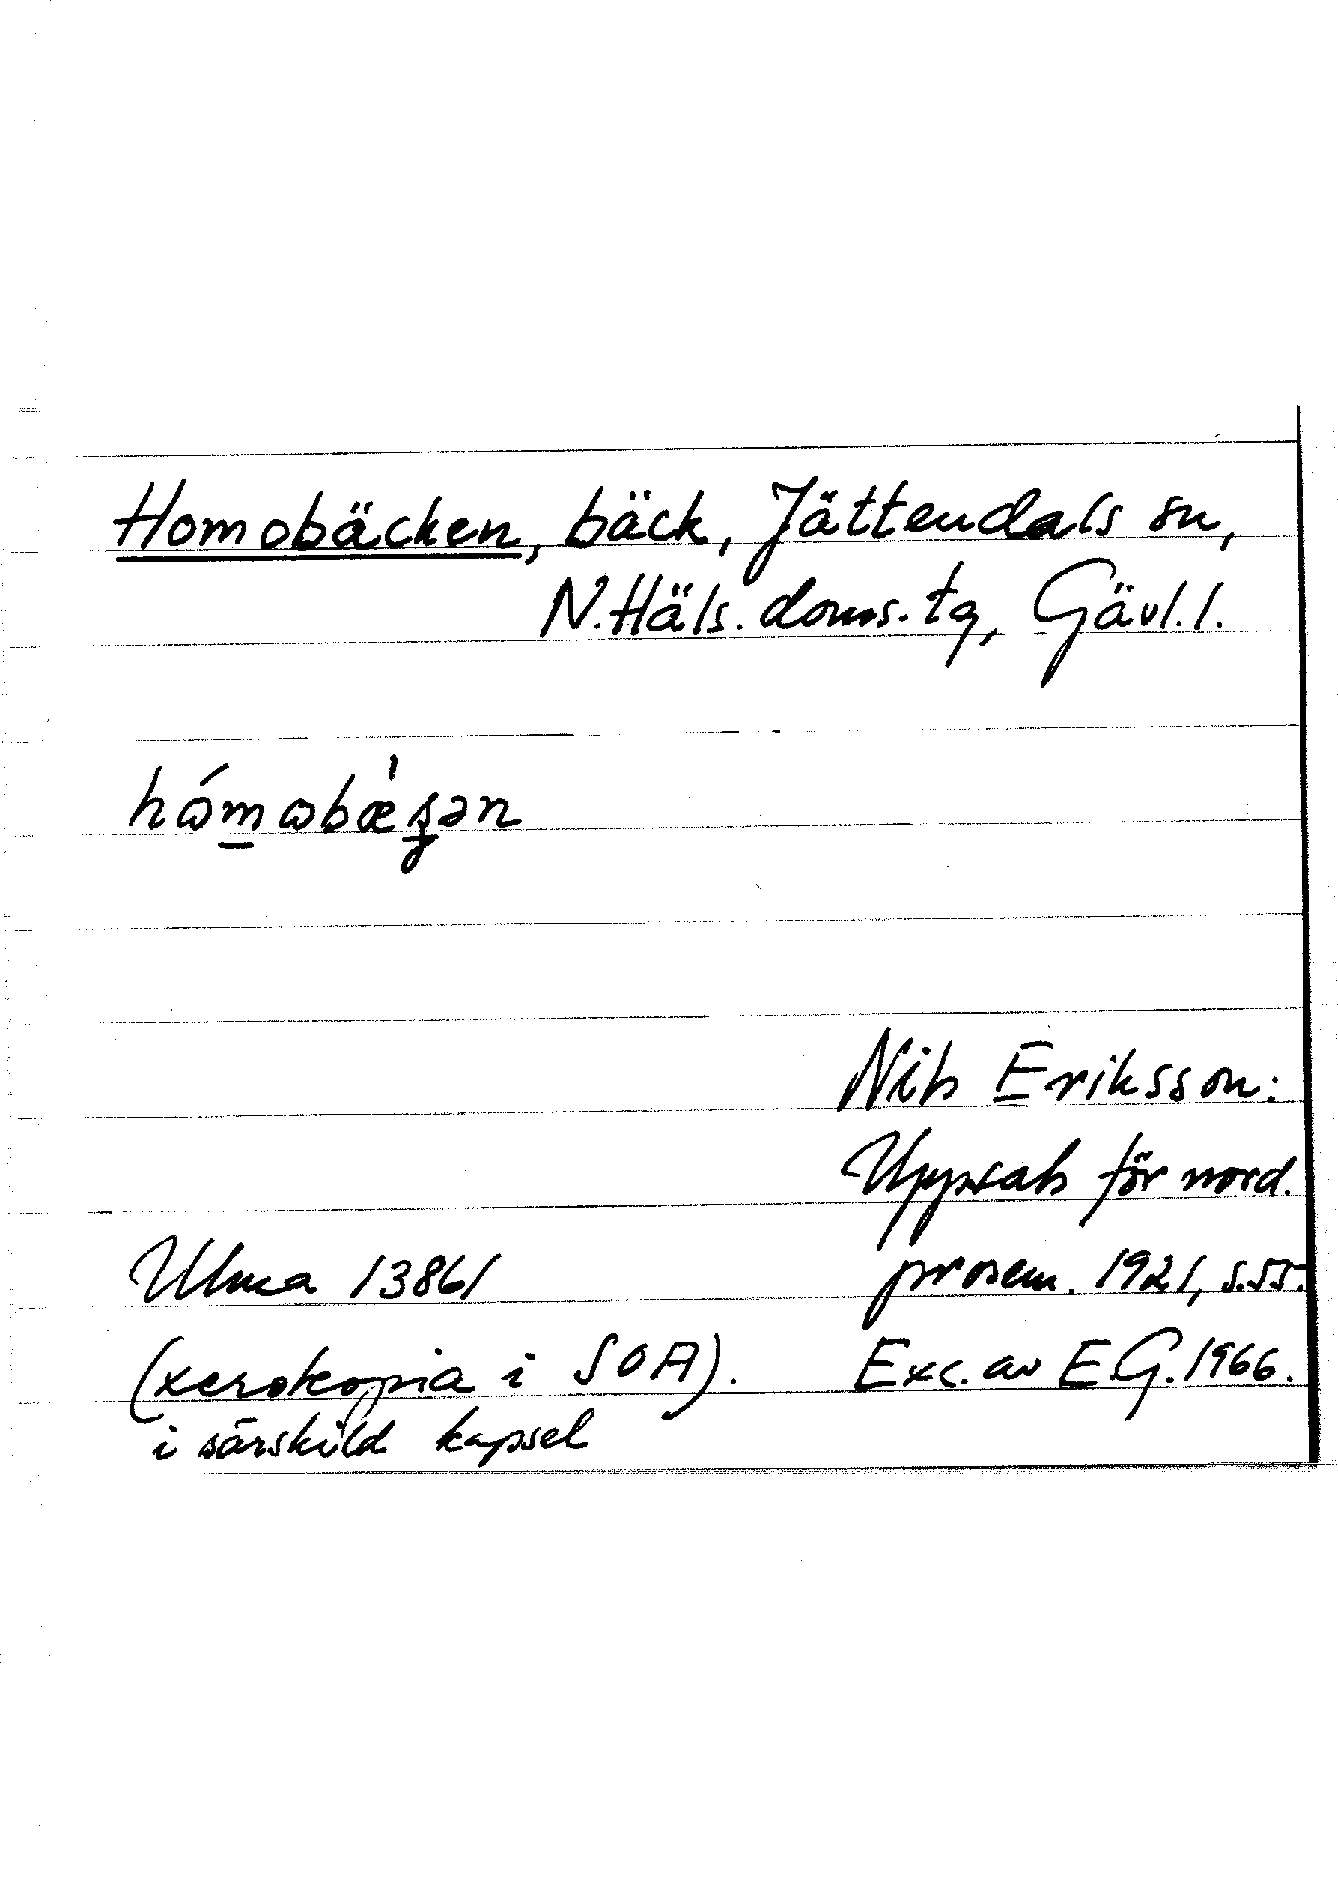 Homobäcken, bäck, Jättendals sn,
N. Häls. doms. tg, Gävl. l.
Nils Eriksson:
Uppsats för nord.
Ulma 13861 prosem. 1921, s. 55.
(xerokopia i SOA). Exc. av E.G. 1966.
i särskild kapsel